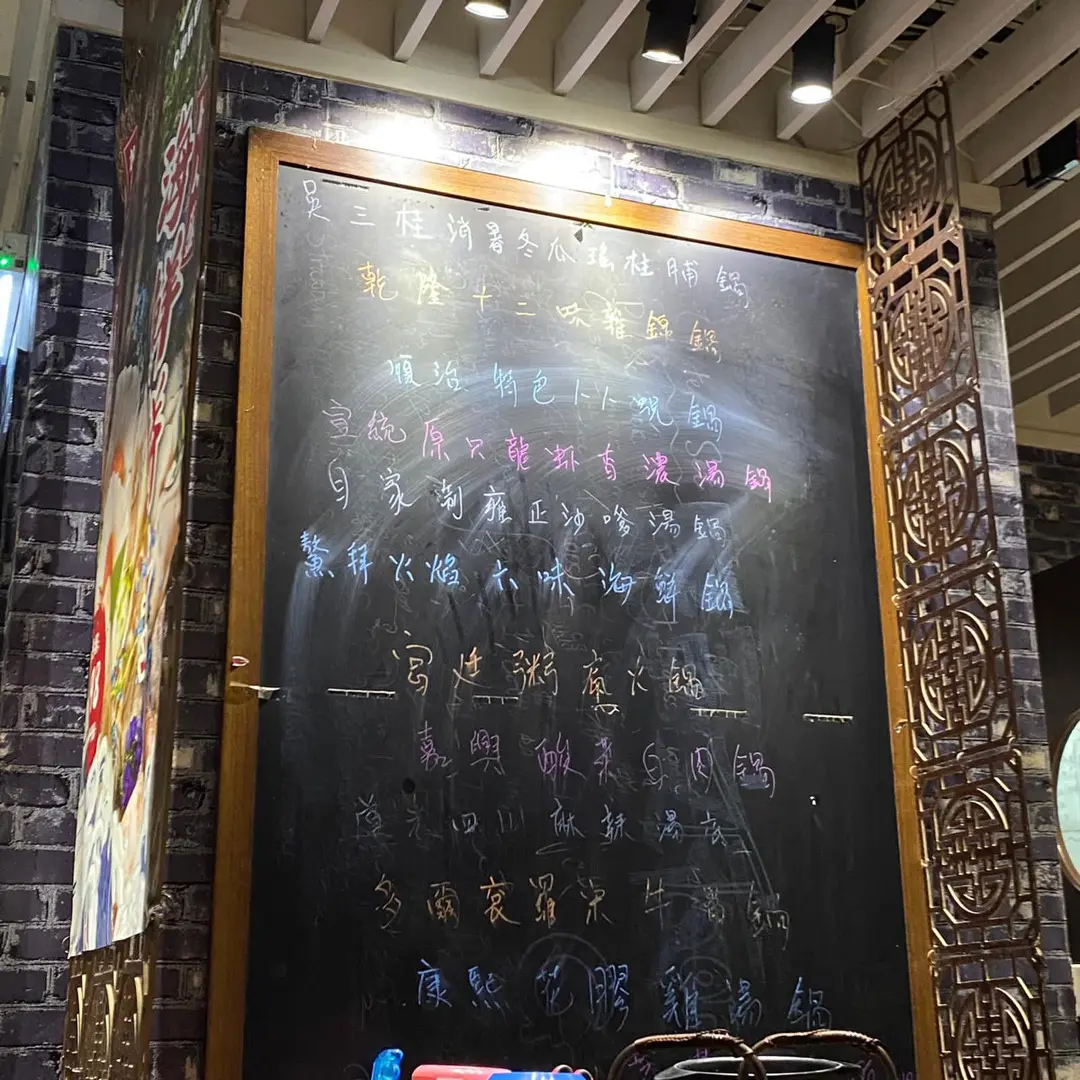 吳三桂消暑冬瓜瑤柱脯鍋
乾隆十二味雜錦鍋
順治特色卜卜蜆鍋
宣統原只龍蝦有濃湯鍋
自家制雍正沙嗲湯鍋
鰲拜火焰六味海鮮鍋
宮廷粥底火鍋
嘉興酸菜白肉鍋
四川麻辣湯底
多爾袞羅宋牛湯鍋
康熙花膠雞湯鍋